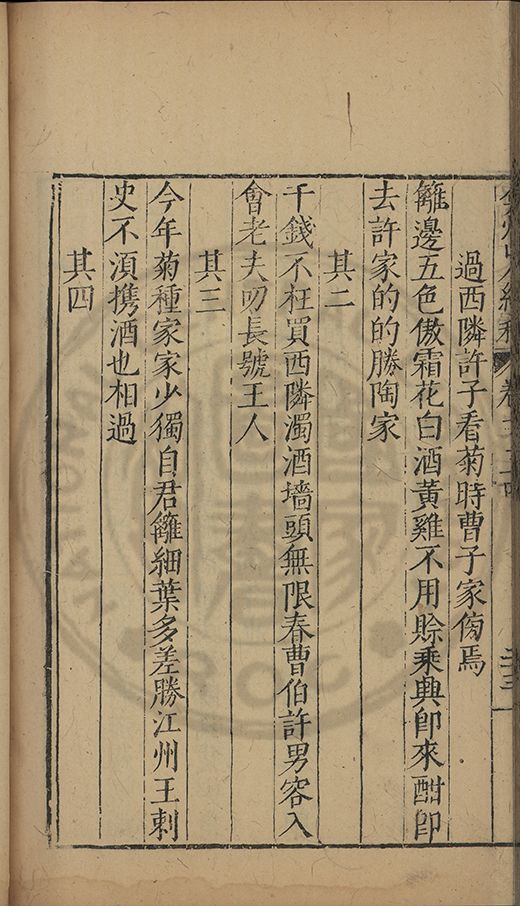 過西隣許子看菊時曹子家傍焉
籬邊五色傲霜花白酒黃雞不用賒乘興卽來酣卽
去許家的的勝陶家
其二
千錢不枉買西隣濁酒墻頭無限春曹伯許男容入
會老夫叨長號王人
其三
今年菊種家家少獨自君籬細葉多差勝江州王刺
史不湏携酒也相過
其四